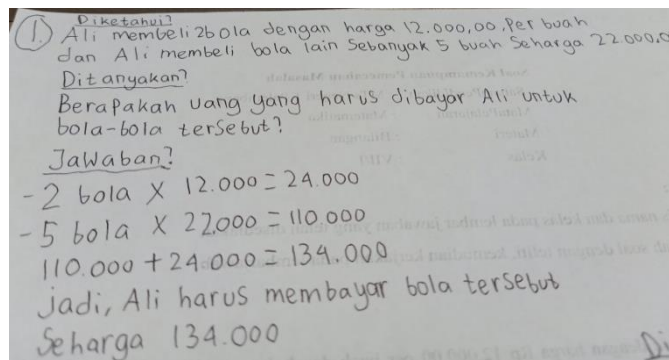 Diketahui?
1. Ali membeli 2 bola dengan harga 12.000,00. Per buah
dan Ali membeli bola lain Sebanyak 5 buah Seharga 22000,0
Ditanyakan?
Berapakah uang yang harus dibayar Ali untuk
bola-bola tersebut?
Jawaban?
- 2 bola X 12.000 = 24.000
- 5 bola X 22.000 = 110.000
110.000 + 24.000 = 134.000
jadi, Ali harus membayar bola tersebut
Seharga 134.000